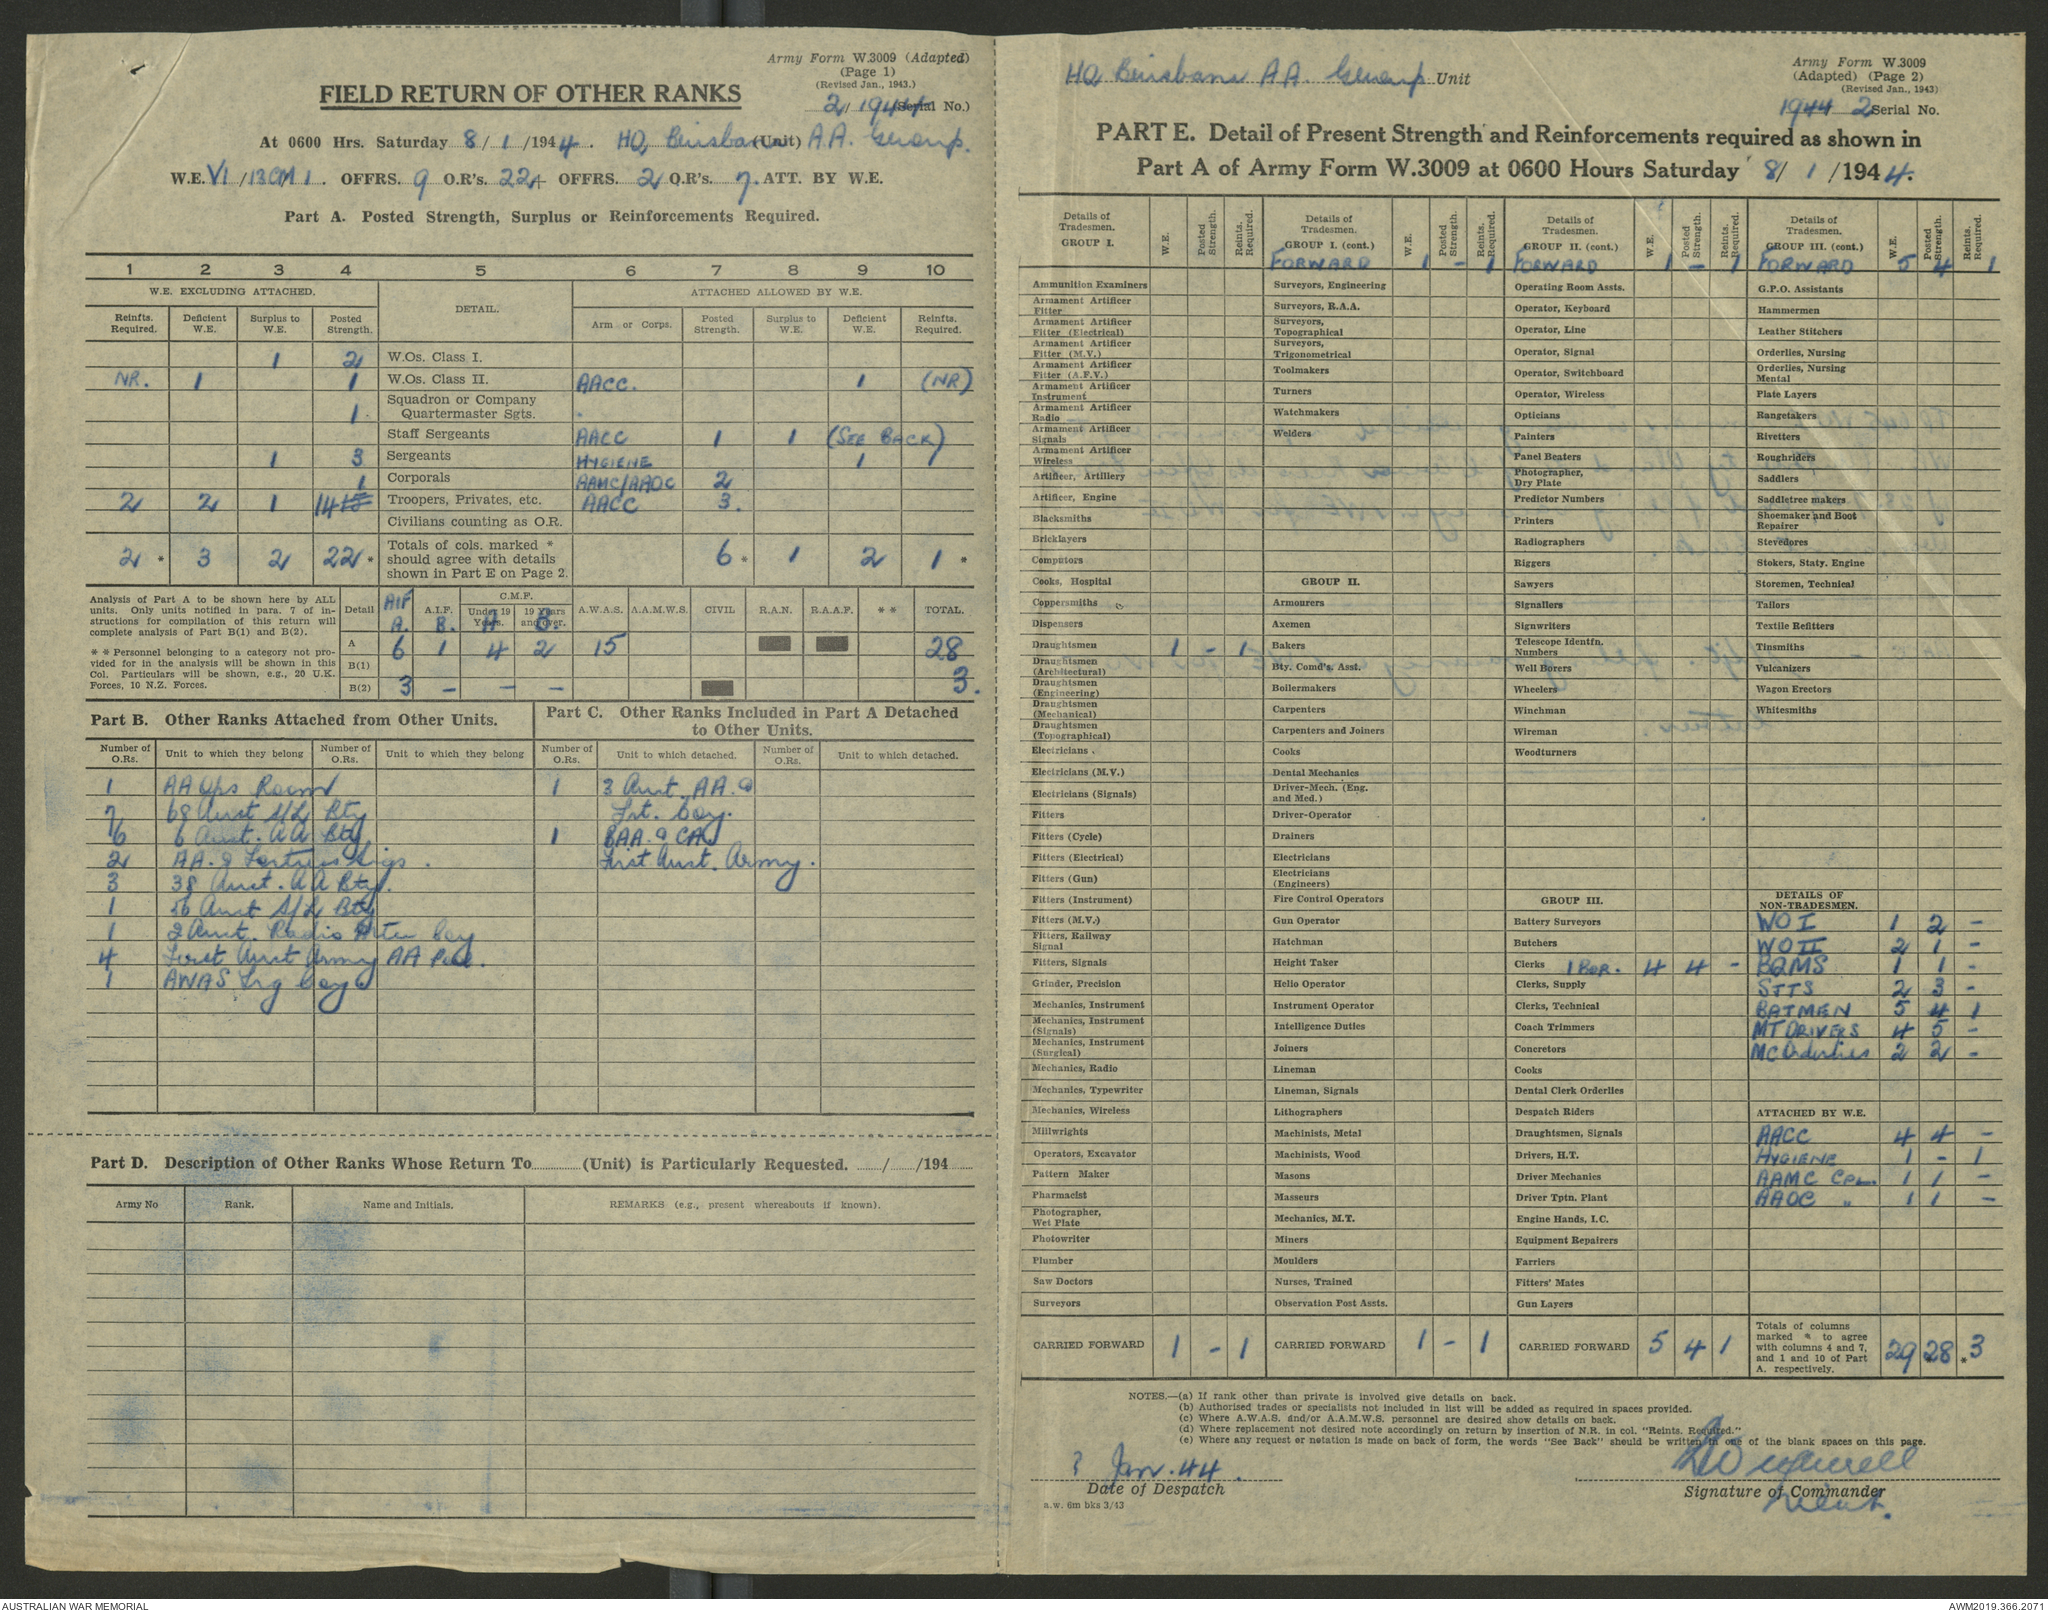 Army Form W.3009 (Adapted)
(Page 1)
(Revised Jan., 1943.)
2/1944 (Serial No.)
FIELD RETURN OF OTHER RANKS
At 0600 Hrs. Saturday 8/1/1944. HQ Brisbane (Unit) AA. Group.
W.E. VI/13CM/1. OFFRS. 9 O.R's. 22+ OFFRS. 2 O.R's. 7. ATT. BY W.E.
Part A. Posted Strength, Surplus or Reinforcements Required.
1 2 3 4 5 6 7 8 9 10
W.E. EXCLUDING ATTACHED. DETAIL. ATTACHED ALLOWED BY W.E.
Reinfts. Required. Deficient W.E. Surplus to W.E. Posted Strength. Arm or Corps. Posted Strength. Surplus to W.E. Deficient W.E. Reinfts. Required.
1 2 W.Os. Class I.
NR. 1 1 W.Os. Class II. AACC. 1 (NR)
1. Squadron or Company Quartermaster Sgts.
Staff Sergeants AACC 1 1 (SEE BACK)
1 3 Sergeants HYGIENE 1 1
1 Corporals AAMC/AAOC 2
2 2 1 14 Troopers, Privates, etc. AACC 3.
Civilians counting as O.R.
2 * 3 2 22 * Totals of cols. marked * should agree with details shown in Part E on Page 2. 6 * 1 2 1 *
Analysis of Part A to be shown here by ALL units. Only units notified in para. 7 of instructions for compilation of this return will complete analysis of Part B(1) and B(2).
** Personnel belonging to a category not provided for in the analysis will be shown in this Col. Particulars will be shown, e.g., 20 U.K. Forces, 10 N.Z. Forces.
Detail AIF A. A.I.F. B. C.M.F. Under 19 Years. A 19 Years and over. B. A.W.A.S. A.A.M.W.S. CIVIL R.A.N. R.A.A.F. ** TOTAL.
A 6 1 4 2 15 28
B(1)
B(2) 3 - - - 3.
Part B. Other Ranks Attached from Other Units.
Number of O.Rs. Unit to which they belong Number of O.Rs. Unit to which they belong
1 AA Ops Room
7 68 Aust S/L Bty
6 6 Aust. AA Bty
2 AA. & Fortress Sigs.
3 38 Aust. AA Bty.
1 56 Aust S/L Bty
1 2 Aust. Radio Coy
4 First Aust Army AA Pool.
1 AWAS Trg Coy
Part C. Other Ranks Included in Part A Detached to Other Units.
Number of O.Rs. Unit to which detached. Number of O.Rs. Unit to which detached.
1 3 Aust. AA. &
Coy.
1 BAA. & CA
First Aust. Army.
Part D. Description of Other Ranks Whose Return To ............ (Unit) is Particularly Requested. ....../....../194......
Army No Rank. Name and Initials. REMARKS (e.g., present whereabouts if known).
HQ Brisbane AA. Group Unit
Army Form W.3009
(Adapted) (Page 2)
(Revised Jan., 1943)
1944 2 Serial No.
PART E. Detail of Present Strength and Reinforcements required as shown in
Part A of Army Form W.3009 at 0600 Hours Saturday 8/1/1944.
Details of Tradesmen. GROUP I. W.E. Posted Strength. Reints. Required.
Ammunition Examiners
Armament Artificer Fitter
Armament Artificer Fitter (Electrical)
Armament Artificer Fitter (M.V.)
Armament Artificer Fitter (A.F.V.)
Armament Artificer Instrument
Armament Artificer Radio
Armament Artificer Signals
Armament Artificer Wireless
Artificer, Artillery
Artificer, Engine
Blacksmiths
Bricklayers
Computors
Cooks, Hospital
Coppersmiths
Dispensers
Draughtsmen 1 - 1
Draughtsmen (Architectural)
Draughtsmen (Engineering)
Draughtsmen (Mechanical)
Draughtsmen (Topographical)
Electricians
Electricians (M.V.)
Electricians (Signals)
Fitters
Fitters (Cycle)
Fitters (Electrical)
Fitters (Gun)
Fitters (Instrument)
Fitters (M.V.)
Fitters, Railway Signal
Fitters, Signals
Grinder, Precision
Mechanics, Instrument
Mechanics, Instrument (Signals)
Mechanics, Instrument (Surgical)
Mechanics, Radio
Mechanics, Typewriter
Mechanics, Wireless
Millwrights
Operators, Excavator
Pattern Maker
Pharmacist
Photographer, Wet Plate
Photowriter
Plumber
Saw Doctors
Surveyors
CARRIED FORWARD 1 - 1
Details of Tradesmen. GROUP I. (cont.) W.E. Posted Strength. Reints. Required.
FORWARD 1 - 1
Surveyors, Engineering
Surveyors, R.A.A.
Surveyors, Topographical
Surveyors, Trigonometrical
Toolmakers
Turners
Watchmakers
Welders
GROUP II.
Armourers
Axemen
Bakers
Bty. Comd's. Asst.
Boilermakers
Carpenters
Carpenters and Joiners
Cooks
Dental Mechanics
Driver-Mech. (Eng. and Med.)
Driver-Operator
Drainers
Electricians
Electricians (Engineers)
Fire Control Operators
Gun Operator
Hatchman
Height Taker
Helio Operator
Instrument Operator
Intelligence Duties
Joiners
Lineman
Lineman, Signals
Lithographers
Machinists, Metal
Machinists, Wood
Masons
Masseurs
Mechanics, M.T.
Miners
Moulders
Nurses, Trained
Observation Post Assts.
CARRIED FORWARD 1 - 1
Details of Tradesmen. GROUP II. (cont.) W.E. Posted Strength. Reints. Required.
FORWARD 1 - 1
Operating Room Assts.
Operator, Keyboard
Operator, Line
Operator, Signal
Operator, Switchboard
Operator, Wireless
Opticians
Painters
Panel Beaters
Photographer, Dry Plate
Predictor Numbers
Printers
Radiographers
Riggers
Sawyers
Signallers
Signwriters
Telescope Identfn. Numbers
Well Borers
Wheelers
Winchman
Wireman
Woodturners
GROUP III.
Battery Surveyors
Butchers
Clerks 1 BDR. 4 4 -
Clerks, Supply
Clerks, Technical
Coach Trimmers
Concretors
Cooks
Dental Clerk Orderlies
Despatch Riders
Draughtsmen, Signals
Drivers, H.T.
Driver Mechanics
Driver Tptn. Plant
Engine Hands, I.C.
Equipment Repairers
Farriers
Fitters' Mates
Gun Layers
CARRIED FORWARD 5 4 1
Details of Tradesmen. GROUP III. (cont.) W.E. Posted Strength. Reints. Required.
FORWARD 5 4 1
G.P.O. Assistants
Hammermen
Leather Stitchers
Orderlies, Nursing
Orderlies, Nursing Mental
Plate Layers
Rangetakers
Rivetters
Roughriders
Saddlers
Saddletree makers
Shoemaker and Boot Repairer
Stevedores
Stokers, Staty. Engine
Storemen, Technical
Tailors
Textile Refitters
Tinsmiths
Vulcanizers
Wagon Erectors
Whitesmiths
DETAILS OF NON-TRADESMEN.
WO I 1 2 -
WO II 2 1 -
BQMS 1 1 -
SJTS 2 3 -
BATMEN 5 4 1
MT DRIVERS 4 5 -
MC Orderlies 2 2 -
ATTACHED BY W.E.
AACC 4 4 -
HYGIENE 1 - 1
AAMC CPL. 1 1 -
AAOC " 1 1 -
Totals of columns marked * to agree with columns 4 and 7, and 1 and 10 of Part A. respectively. 29 28 * 3
NOTES.—(a) If rank other than private is involved give details on back.
(b) Authorised trades or specialists not included in list will be added as required in spaces provided.
(c) Where A.W.A.S. and/or A.A.M.W.S. personnel are desired show details on back.
(d) Where replacement not desired note accordingly on return by insertion of N.R. in col. "Reints. Required."
(e) Where any request or notation is made on back of form, the words "See Back" should be written in one of the blank spaces on this page.
Jan. 44.
Date of Despatch
Signature of Commander
Lieut.
a.w. 6m bks 3/43
AUSTRALIAN WAR MEMORIAL
AWM2019.366.2071